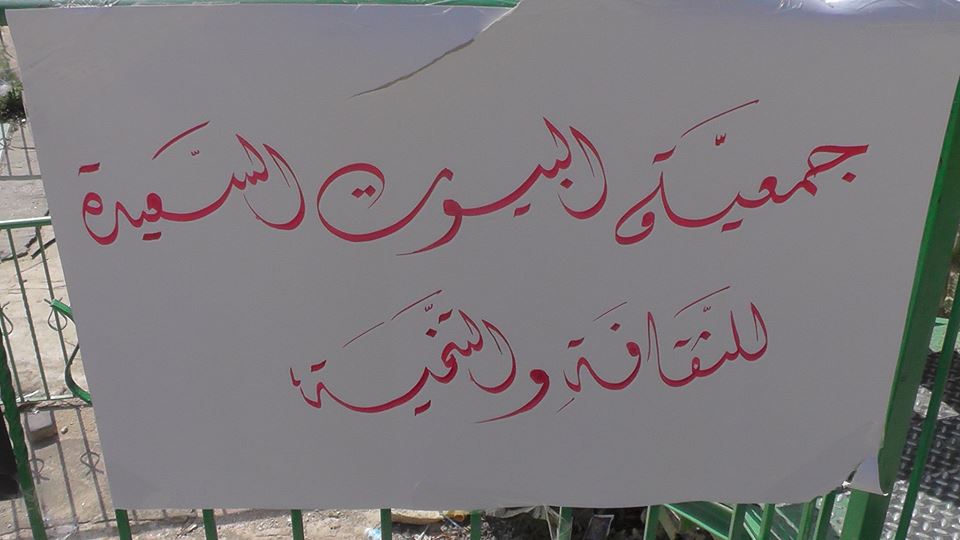 جمعيّة البيوت السّعيدة
للثّقافَةِ والتّنمية